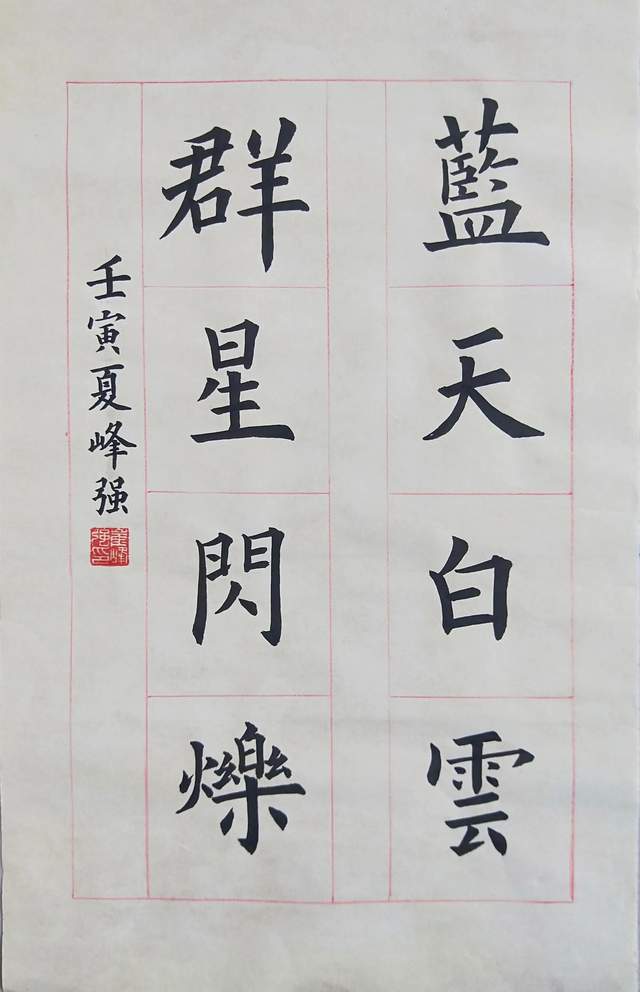 藍天白雲
群星閃爍
壬寅夏峰强